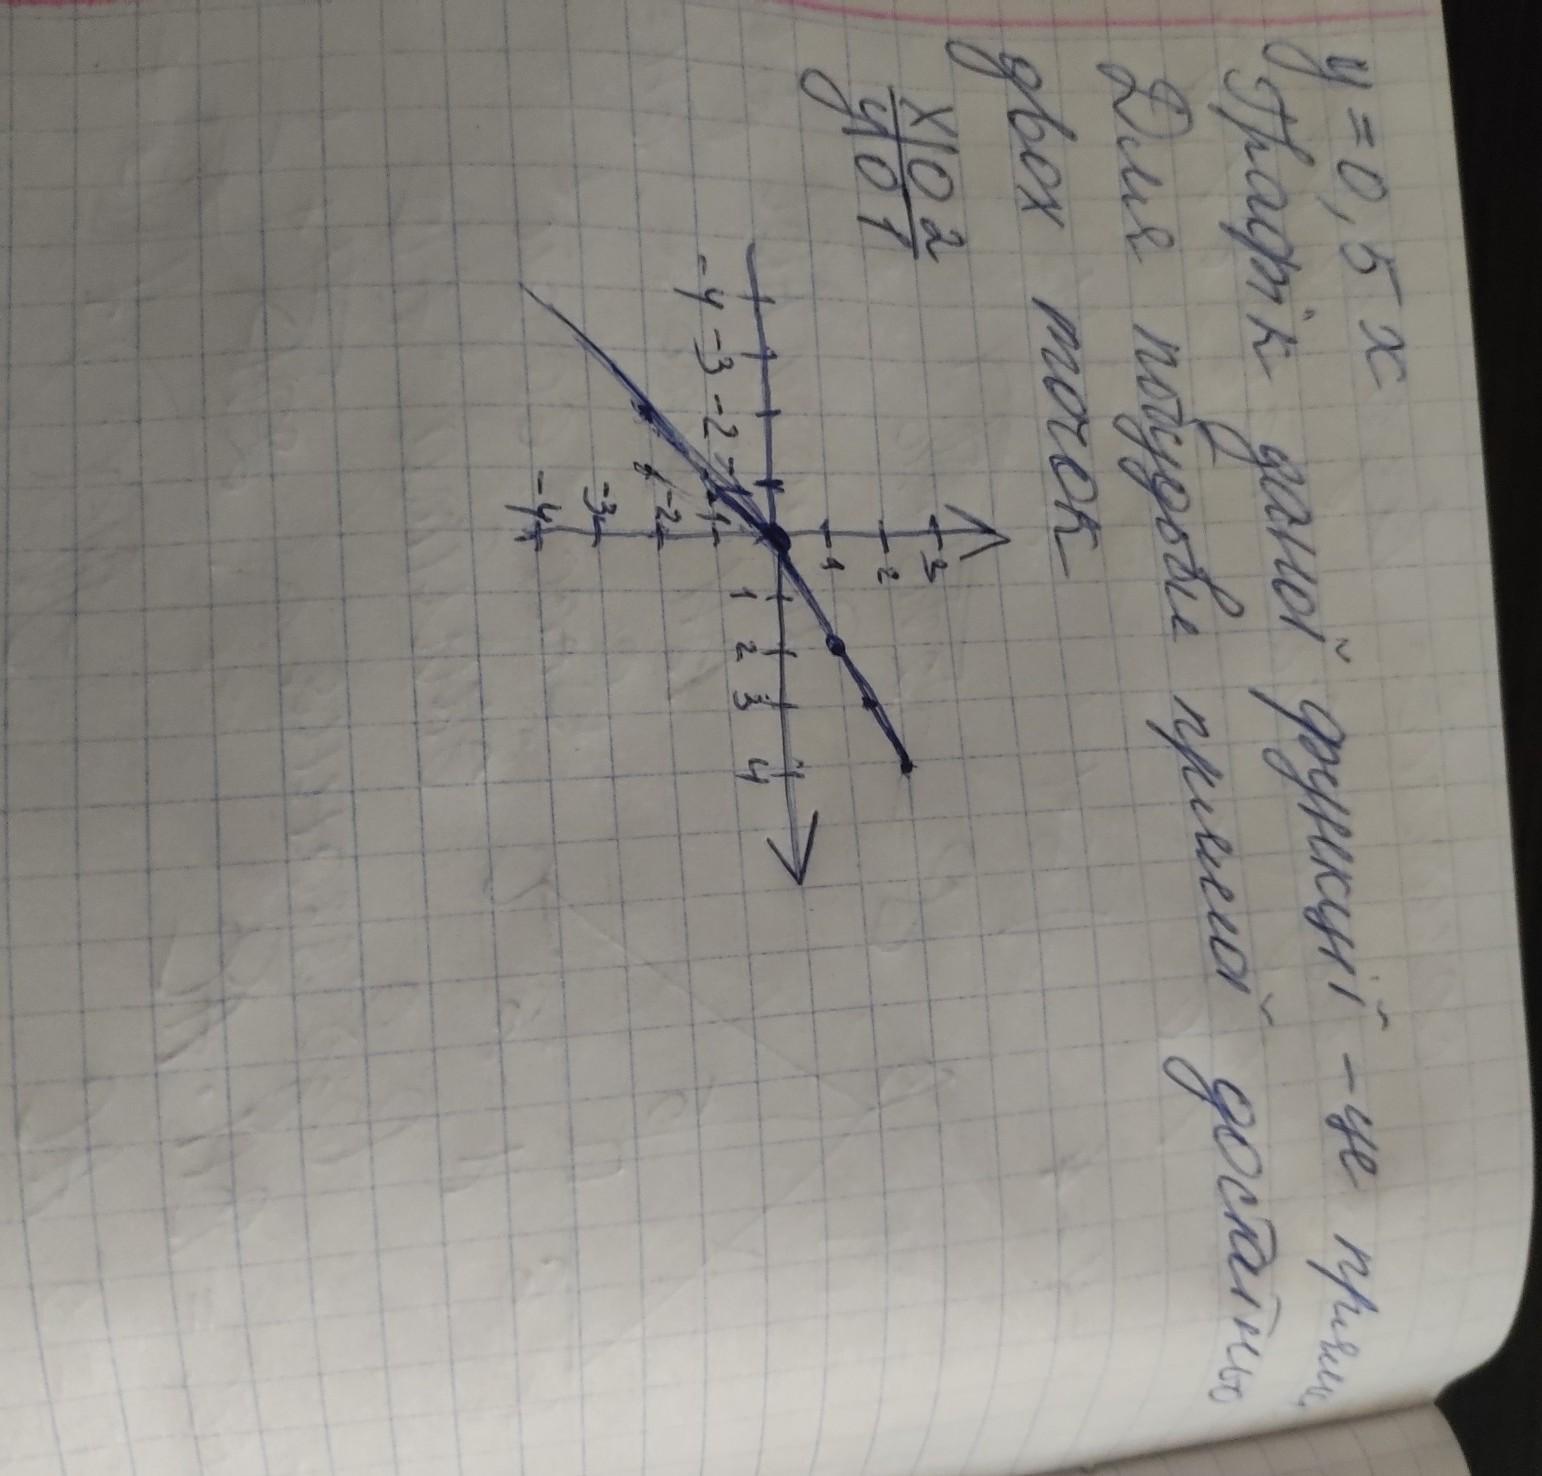 y = 0,5 x
Графік даної функції - це пряма
Для побудови прямої достатньо
двох точок
x 0 2
y 0 1
3
2
1
-4 -3 -2 -1 1 2 3 4
-1
-2
-3
-4